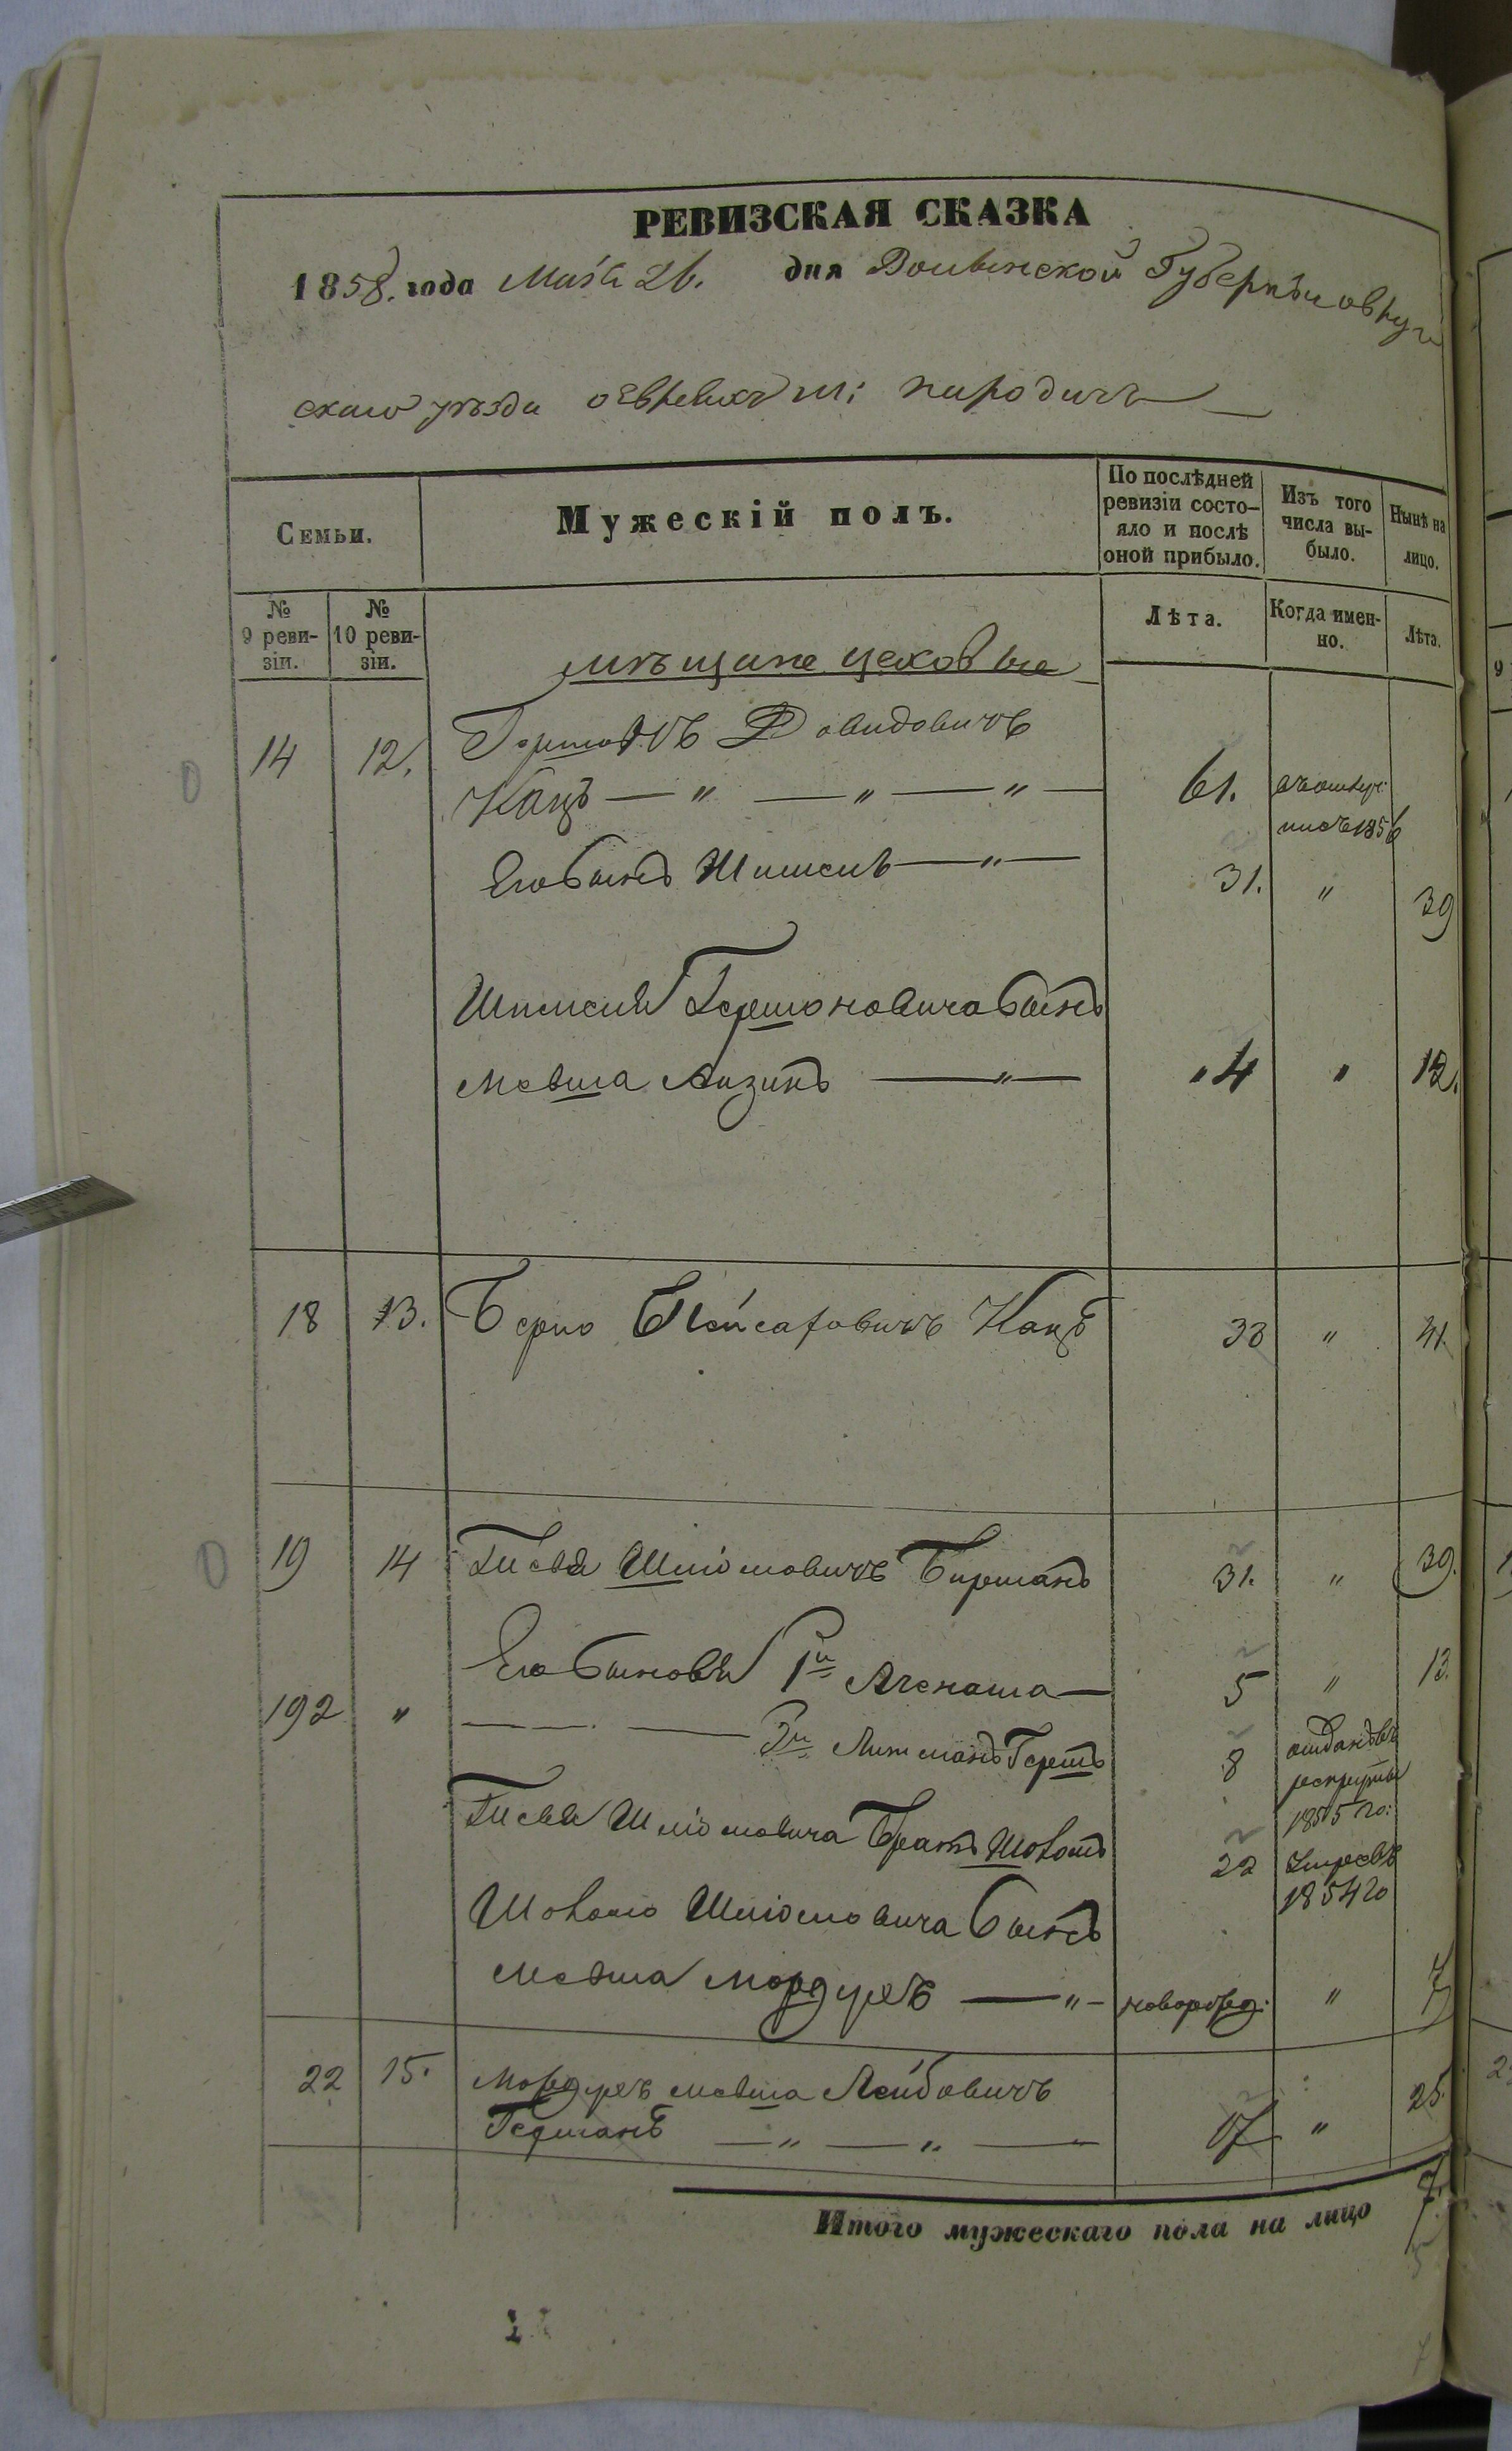 РЕВИЗСКАЯ СКАЗКА
1858. года Мая 26. дня Волынской Губерніи овруч
скаго уѣзда о евреяхъ м: народичъ
Семьи.
Мужескій полъ.
По послѣдней
ревизіи состо-
яло и послѣ
оной прибыло.
Изъ того
числа вы-
было.
Нынѣ на
лицо.
№
9 реви-
зіи.
№
10 реви-
зіи.
Лѣта.
Когда имен-
но.
Лѣта.
мѣщане цеховые
14 12. Гершонъ Довидовичъ
Кацъ — " — " — " — 61.
1856
Его Сынъ Шимсий — " — 31. " 39
Шимсия Гершоновича Сынъ
Мовша Айзикъ — " — " 4 " 12.
18 13. Берко Пейсаховичъ Кацъ 33 " 41.
19 14 Шліомовичъ Бирманъ 31. " 39.
Его Сыновья 1й — 5 " 13.
192 " — — 2й Литманъ Гершъ 8 отданъ въ
рекруты
1855 го:
Шліомовича Братъ 22 Умре въ
1854 го
Шліомовича Сынъ
Мовша Мордухъ — " — новорожд: " 7
22 15. Мордухъ Мовша Лейбовичъ
Германъ — " — " — 17 " 25.
Итого мужескаго пола на лицо 7.